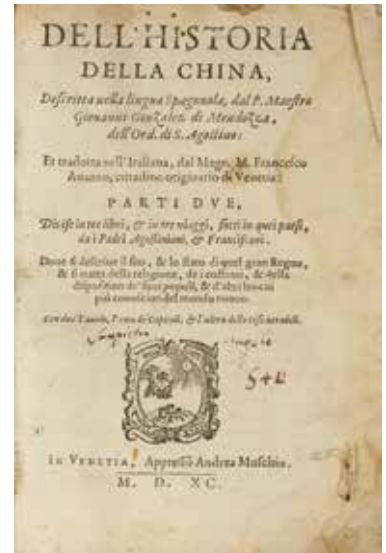 DELL'HISTORIA
DELLA CHINA,
Descritta nella lingua Spagnuola, dal P. Maestro
Giovanni Gonzalez di Mendozza,
dell'Ord. di S. Agostino:
Et tradotta nell'Italiana, dal Magn. M. Francesco
Auanzo, cittadino originario di Venetia:
PARTI DVE,
Diuise in tre libri, & in tre viaggi, fatti in quei paesi,
da i Padri Agostiniani, & Franciscani.
Doue si descriue il sito, & lo stato di quel gran Regno,
& si tratta della religione, de i costumi, & della
disposition de' suoi popoli, & d'altri luochi
più conosciuti del mondo nuouo.
Con due Tauole, l'una de' Capitoli, & l'altra delle cose notabili.
IN VENETIA, Appresso Andrea Muschio.
M. D. XC.